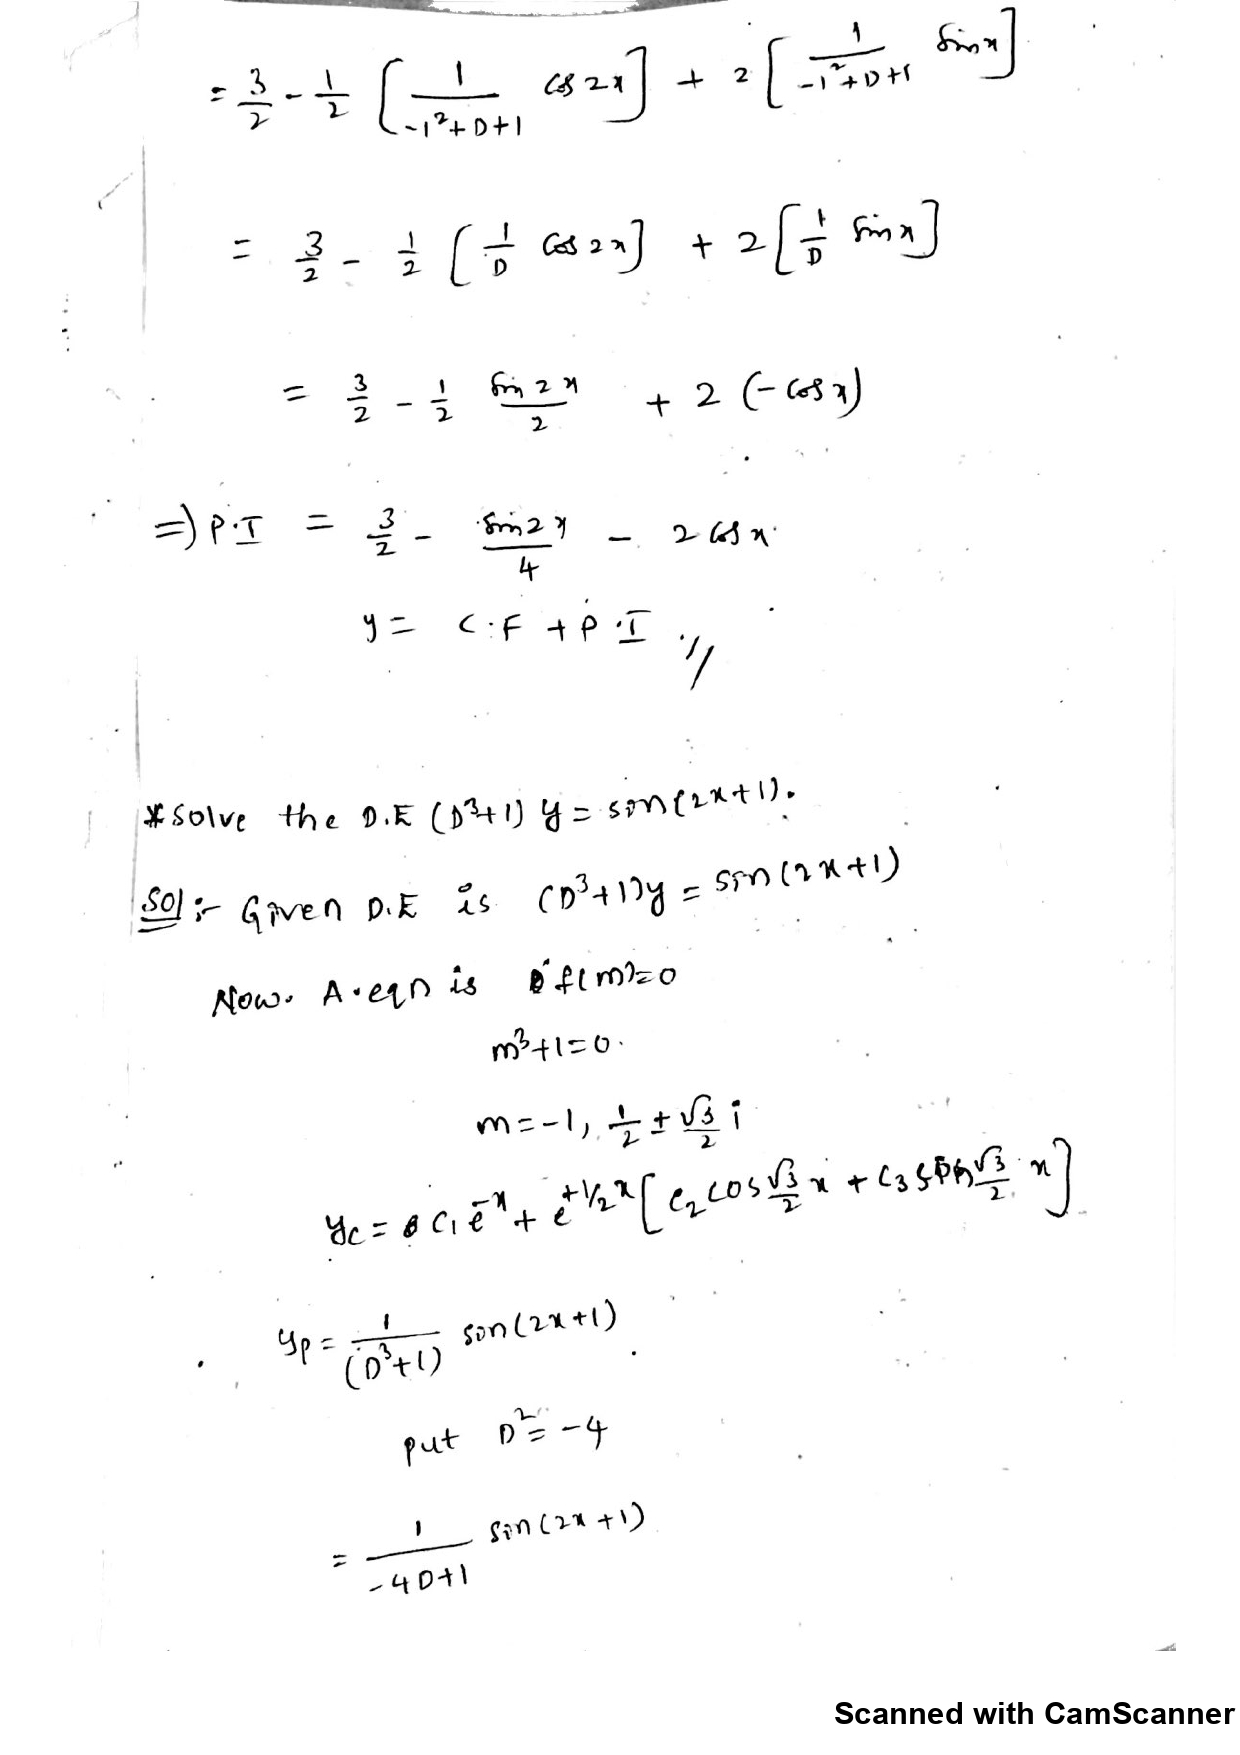 = 3/2 - 1/2 [ 1/(-1²+D+1) cos 2x ] + 2 [ 1/(-1²+D+1) sin x ]
= 3/2 - 1/2 [ 1/D cos 2x ] + 2 [ 1/D sin x ]
= 3/2 - 1/2 sin 2x/2 + 2 (-cos x)
=> P.I = 3/2 - sin 2x/4 - 2 cos x
y = C.F + P.I //
* Solve the D.E (D³+1) y = sin(2x+1).
Sol :- Given D.E is (D³+1)y = sin(2x+1)
Now. A.eqn is f(m)=0
m³+1=0.
m = -1, 1/2 ± √3/2 i
yc = c₁ e^-x + e^+1/2 x [ c₂ cos √3/2 x + c₃ sin √3/2 x ]
yp = 1/(D³+1) sin(2x+1)
put D² = -4
= 1/(-4D+1) sin(2x+1)
Scanned with CamScanner